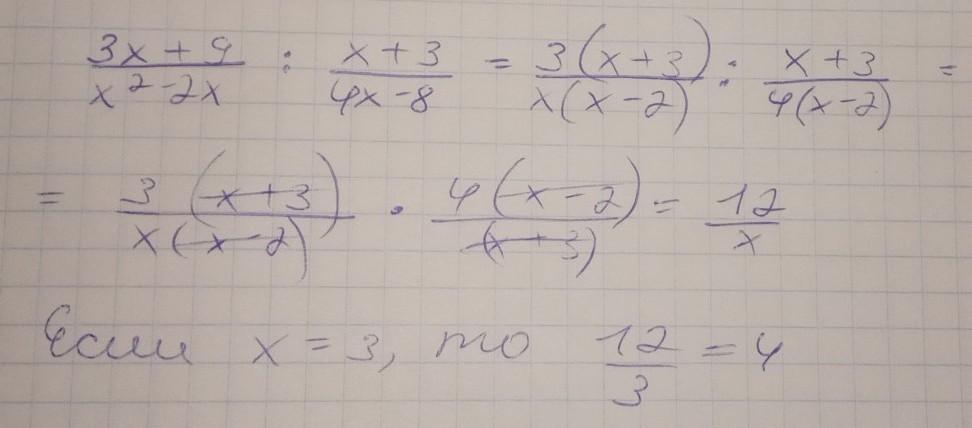 (3x + 9)/(x² - 2x) : (x + 3)/(4x - 8) = 3(x + 3)/x(x - 2) : (x + 3)/4(x - 2) =
= 3(x + 3)/x(x - 2) · 4(x - 2)/(x + 3) = 12/x
Если x = 3, то 12/3 = 4